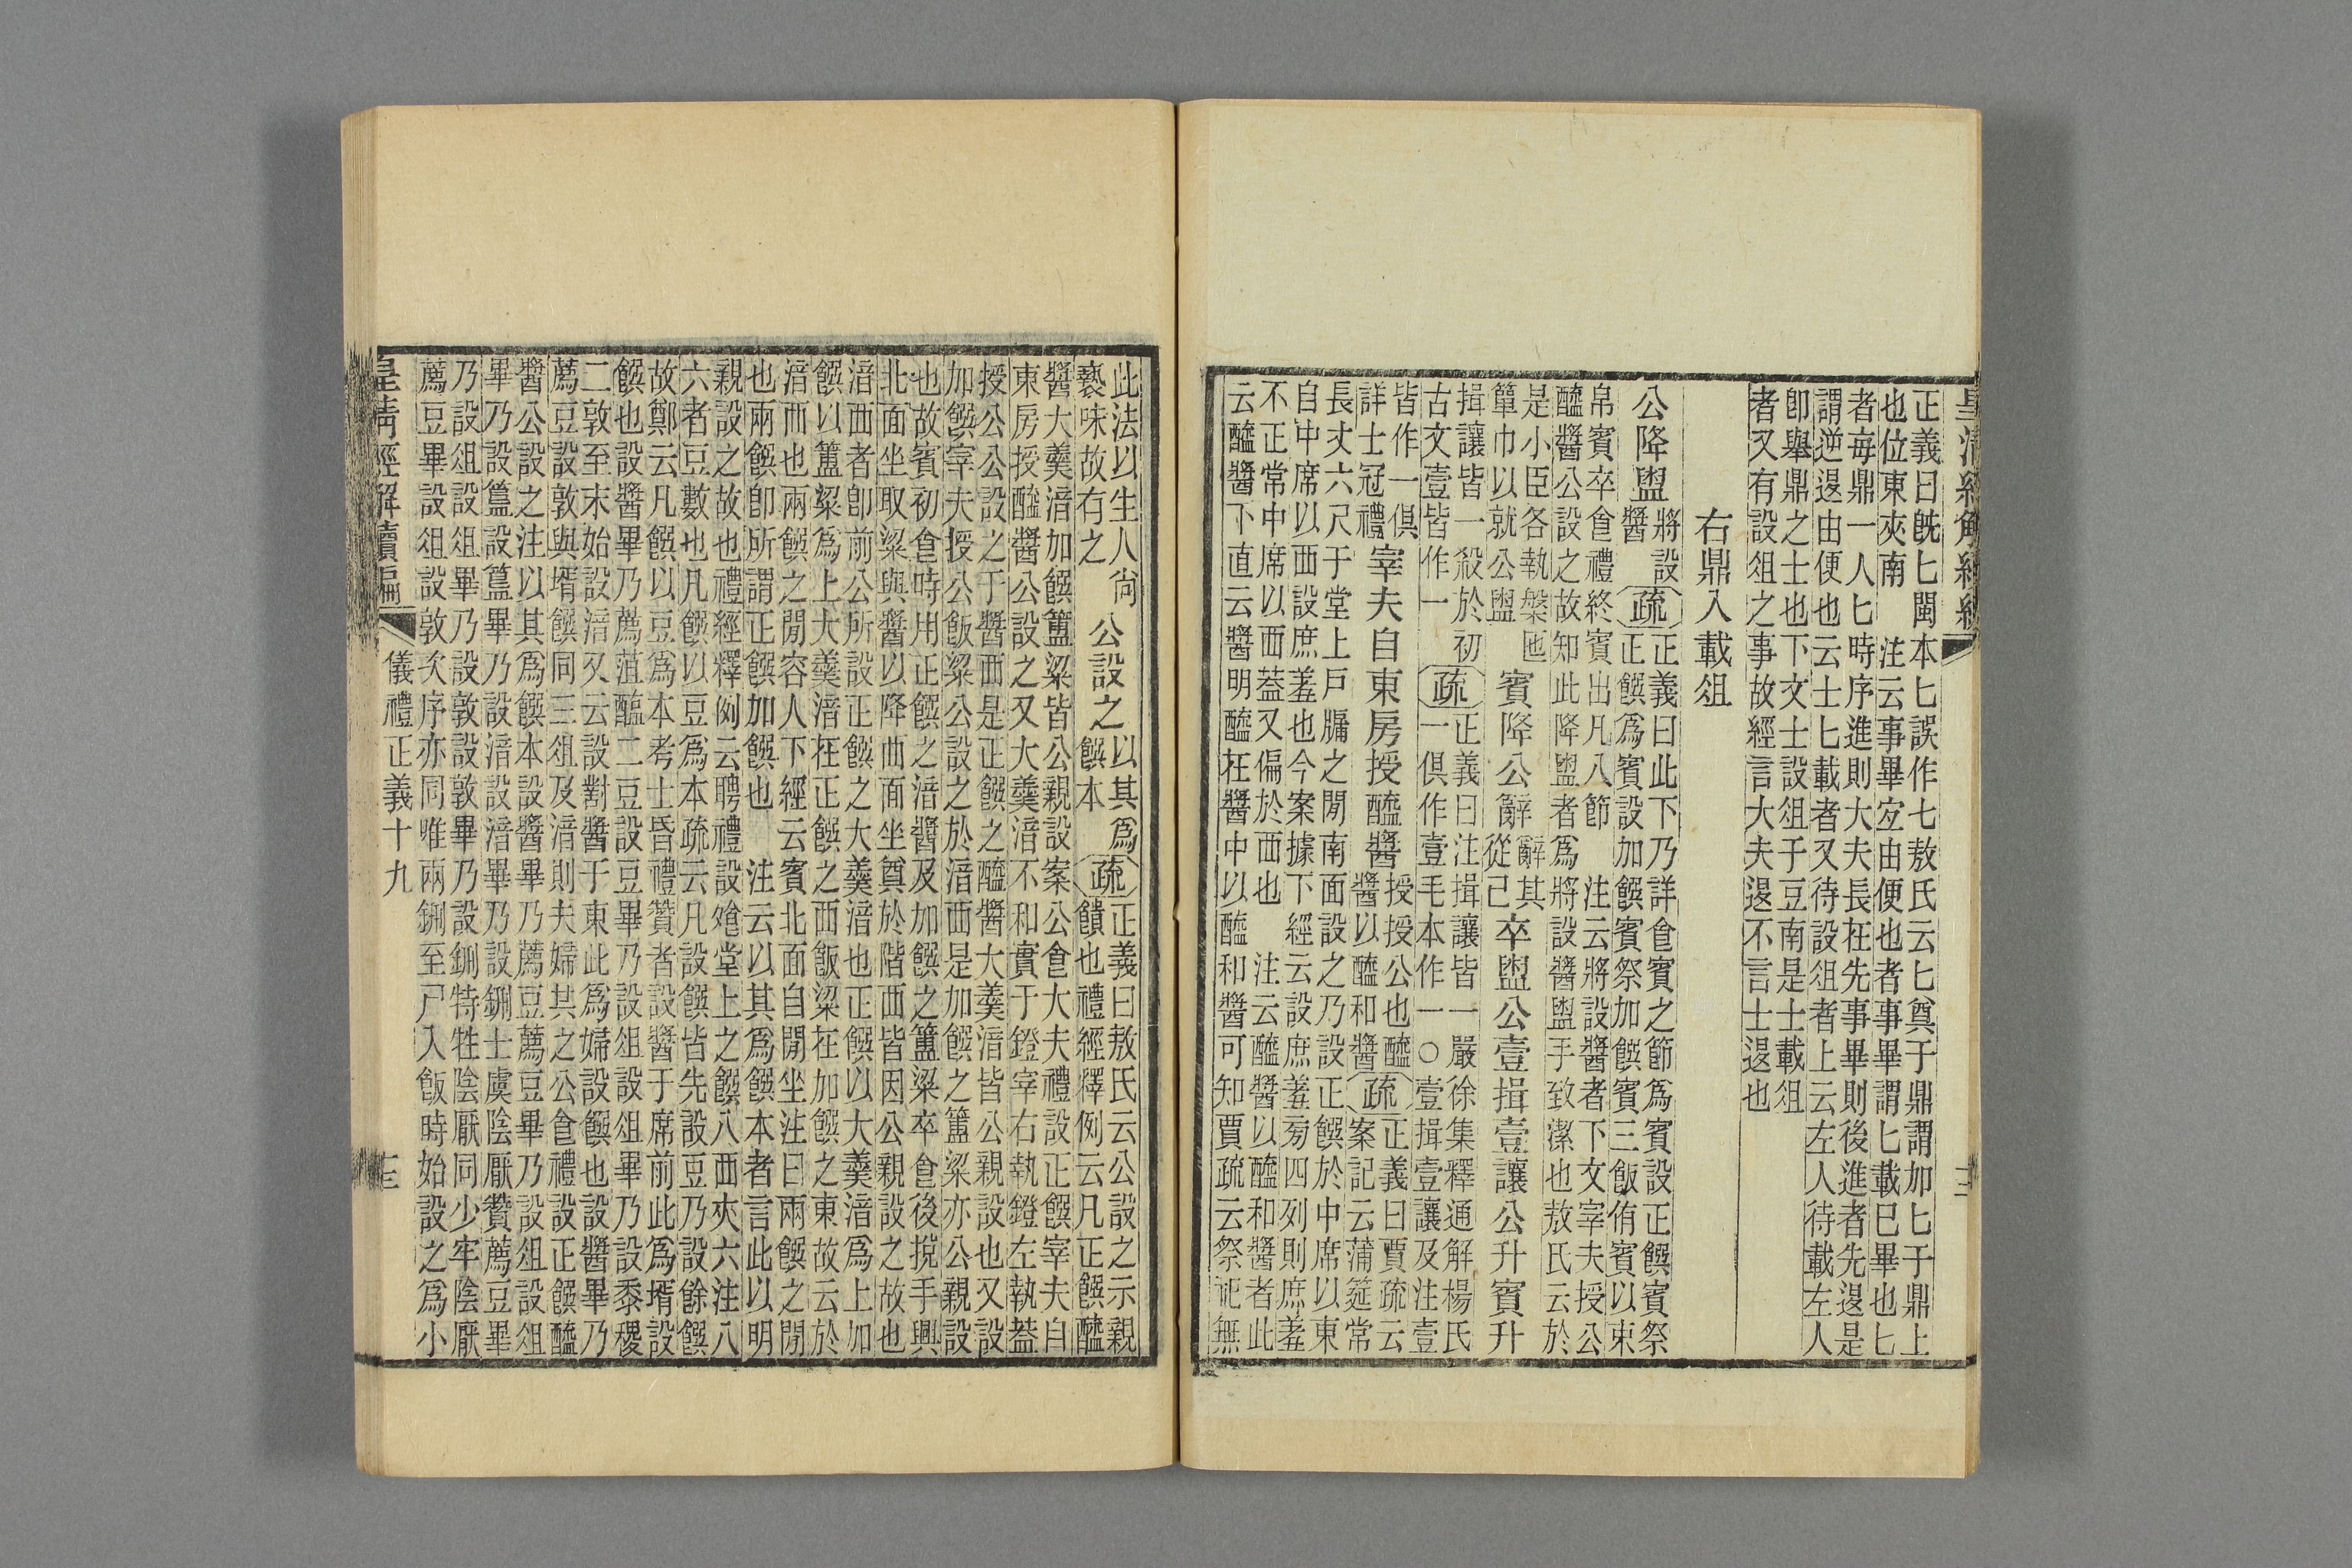 皇清經解續編
正義曰既匕閩本匕誤作七敖氏云匕奠于鼎謂加匕于鼎上
也位東夾南　注云事畢宐由便也者事畢謂匕載巳畢也匕
者每鼎一人匕時序進則大夫長在先事畢則後進者先退是
謂逆退由便也云士匕載者又待設俎者上云左人待載左人
即舉鼎之士也下文士設俎于豆南是士載俎
者又有設俎之事故經言大夫退不言士退也
右鼎入載俎
公降盥
將設
醬
疏
正義曰此下乃詳食賓之節爲賓設正饌賓祭
正饌爲賓設加饌賓祭加饌賓三飯侑賓以束
帛賓卒食禮終賓出凡八節　注云將設醬者下文宰夫授公
醯醬公設之故知此降盥者爲將設醬盥手致潔也敖氏云於
是小臣各執槃匜
簞巾以就公盥
賓降公辭
辭其
從己
卒盥公壹揖壹讓公升賓升
揖讓皆一殺於初
古文壹皆作一
疏
正義曰注揖讓皆一嚴徐集釋通解楊氏
一俱作壹毛本作一○壹揖壹讓及注壹
皆作一俱
詳士冠禮
宰夫自東房授醯醬
授授公也醯
醬以醯和醬
疏
正義曰賈疏云
案記云蒲筵常
長丈六尺于堂上戶牖之閒南面設之乃設正饌於中席以東
自中席以西設庶羞也今案據下經云設庶羞㫄四列則庶羞
不正常中席以西葢又偏於西也　注云醯醬以醯和醬者此
云醯醬下直云醬明醯在醬中以醯和醬可知賈疏云祭祀無
此法以生人尚
褻味故有之
公設之
以其爲
饌本
疏
正義曰敖氏云公設之示親
饋也禮經釋例云凡正饌醯
醬大羹湆加饌簠粱皆公親設案公食大夫禮設正饌宰夫自
東房授醯醬公設之又大羹湆不和實于鐙宰右執鐙左執葢
授公公設之于醬西是正饌之醯醬大羹湆皆公親設也又設
加饌宰夫授公飯粱公設之於湆西是加饌之簠粱亦公親設
也故賓初食時用正饌之湆醬及加饌之簠粱卒食後挩手興
北面坐取粱與醬以降西面坐奠於階西皆因公親設之故也
湆西者即前公所設正饌之大羹湆也正饌以大羹湆爲上加
饌以簠粱爲上大羹湆在正饌之西飯粱在加饌之東故云於
湆西也兩饌之閒容人下經云賓北面自閒坐注曰兩饌之閒
也兩饌即所謂正饌加饌也　注云以其爲饌本者言此以明
親設之故也禮經釋例云聘禮設飧堂上之饌八西夾六注八
六者豆數也凡饌以豆爲本疏云凡設饌皆先設豆乃設餘饌
故鄭云凡饌以豆爲本考士昏禮贊者設醬于席前此爲壻設
饌也設醬畢乃薦菹醢二豆設豆畢乃設俎設俎畢乃設黍稷
二敦至末始設湆又云設對醬于東此爲婦設饌也設醬畢乃
薦豆設敦與壻饌同三俎及湆則夫婦共之公食禮設正饌醯
醬公設之注以其爲饌本設醬畢乃薦豆薦豆畢乃設俎設俎
畢乃設簋設簋畢乃設湆設湆畢乃設鉶士虞陰厭贊薦豆畢
乃設俎設俎畢乃設敦設敦畢乃設鉶特牲陰厭同少牢陰厭
薦豆畢設俎設敦次序亦同唯兩鉶至尸入飯時始設之爲小
皇清經解續編　儀禮正義十九